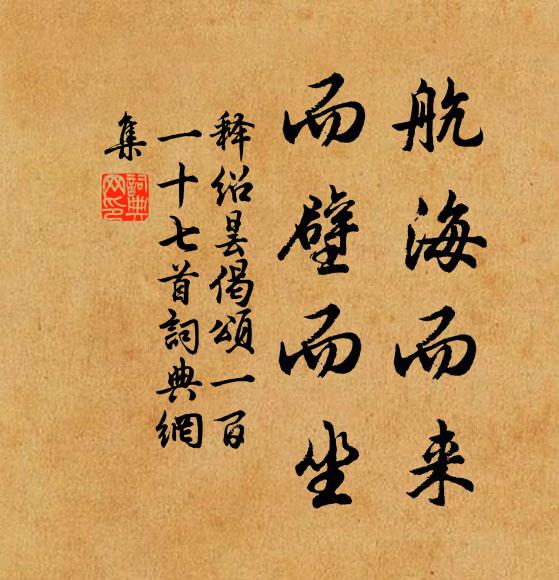 航海而来
而壁而坐
释绍昙偈颂一百
一十七首词典網
集
詞典網印